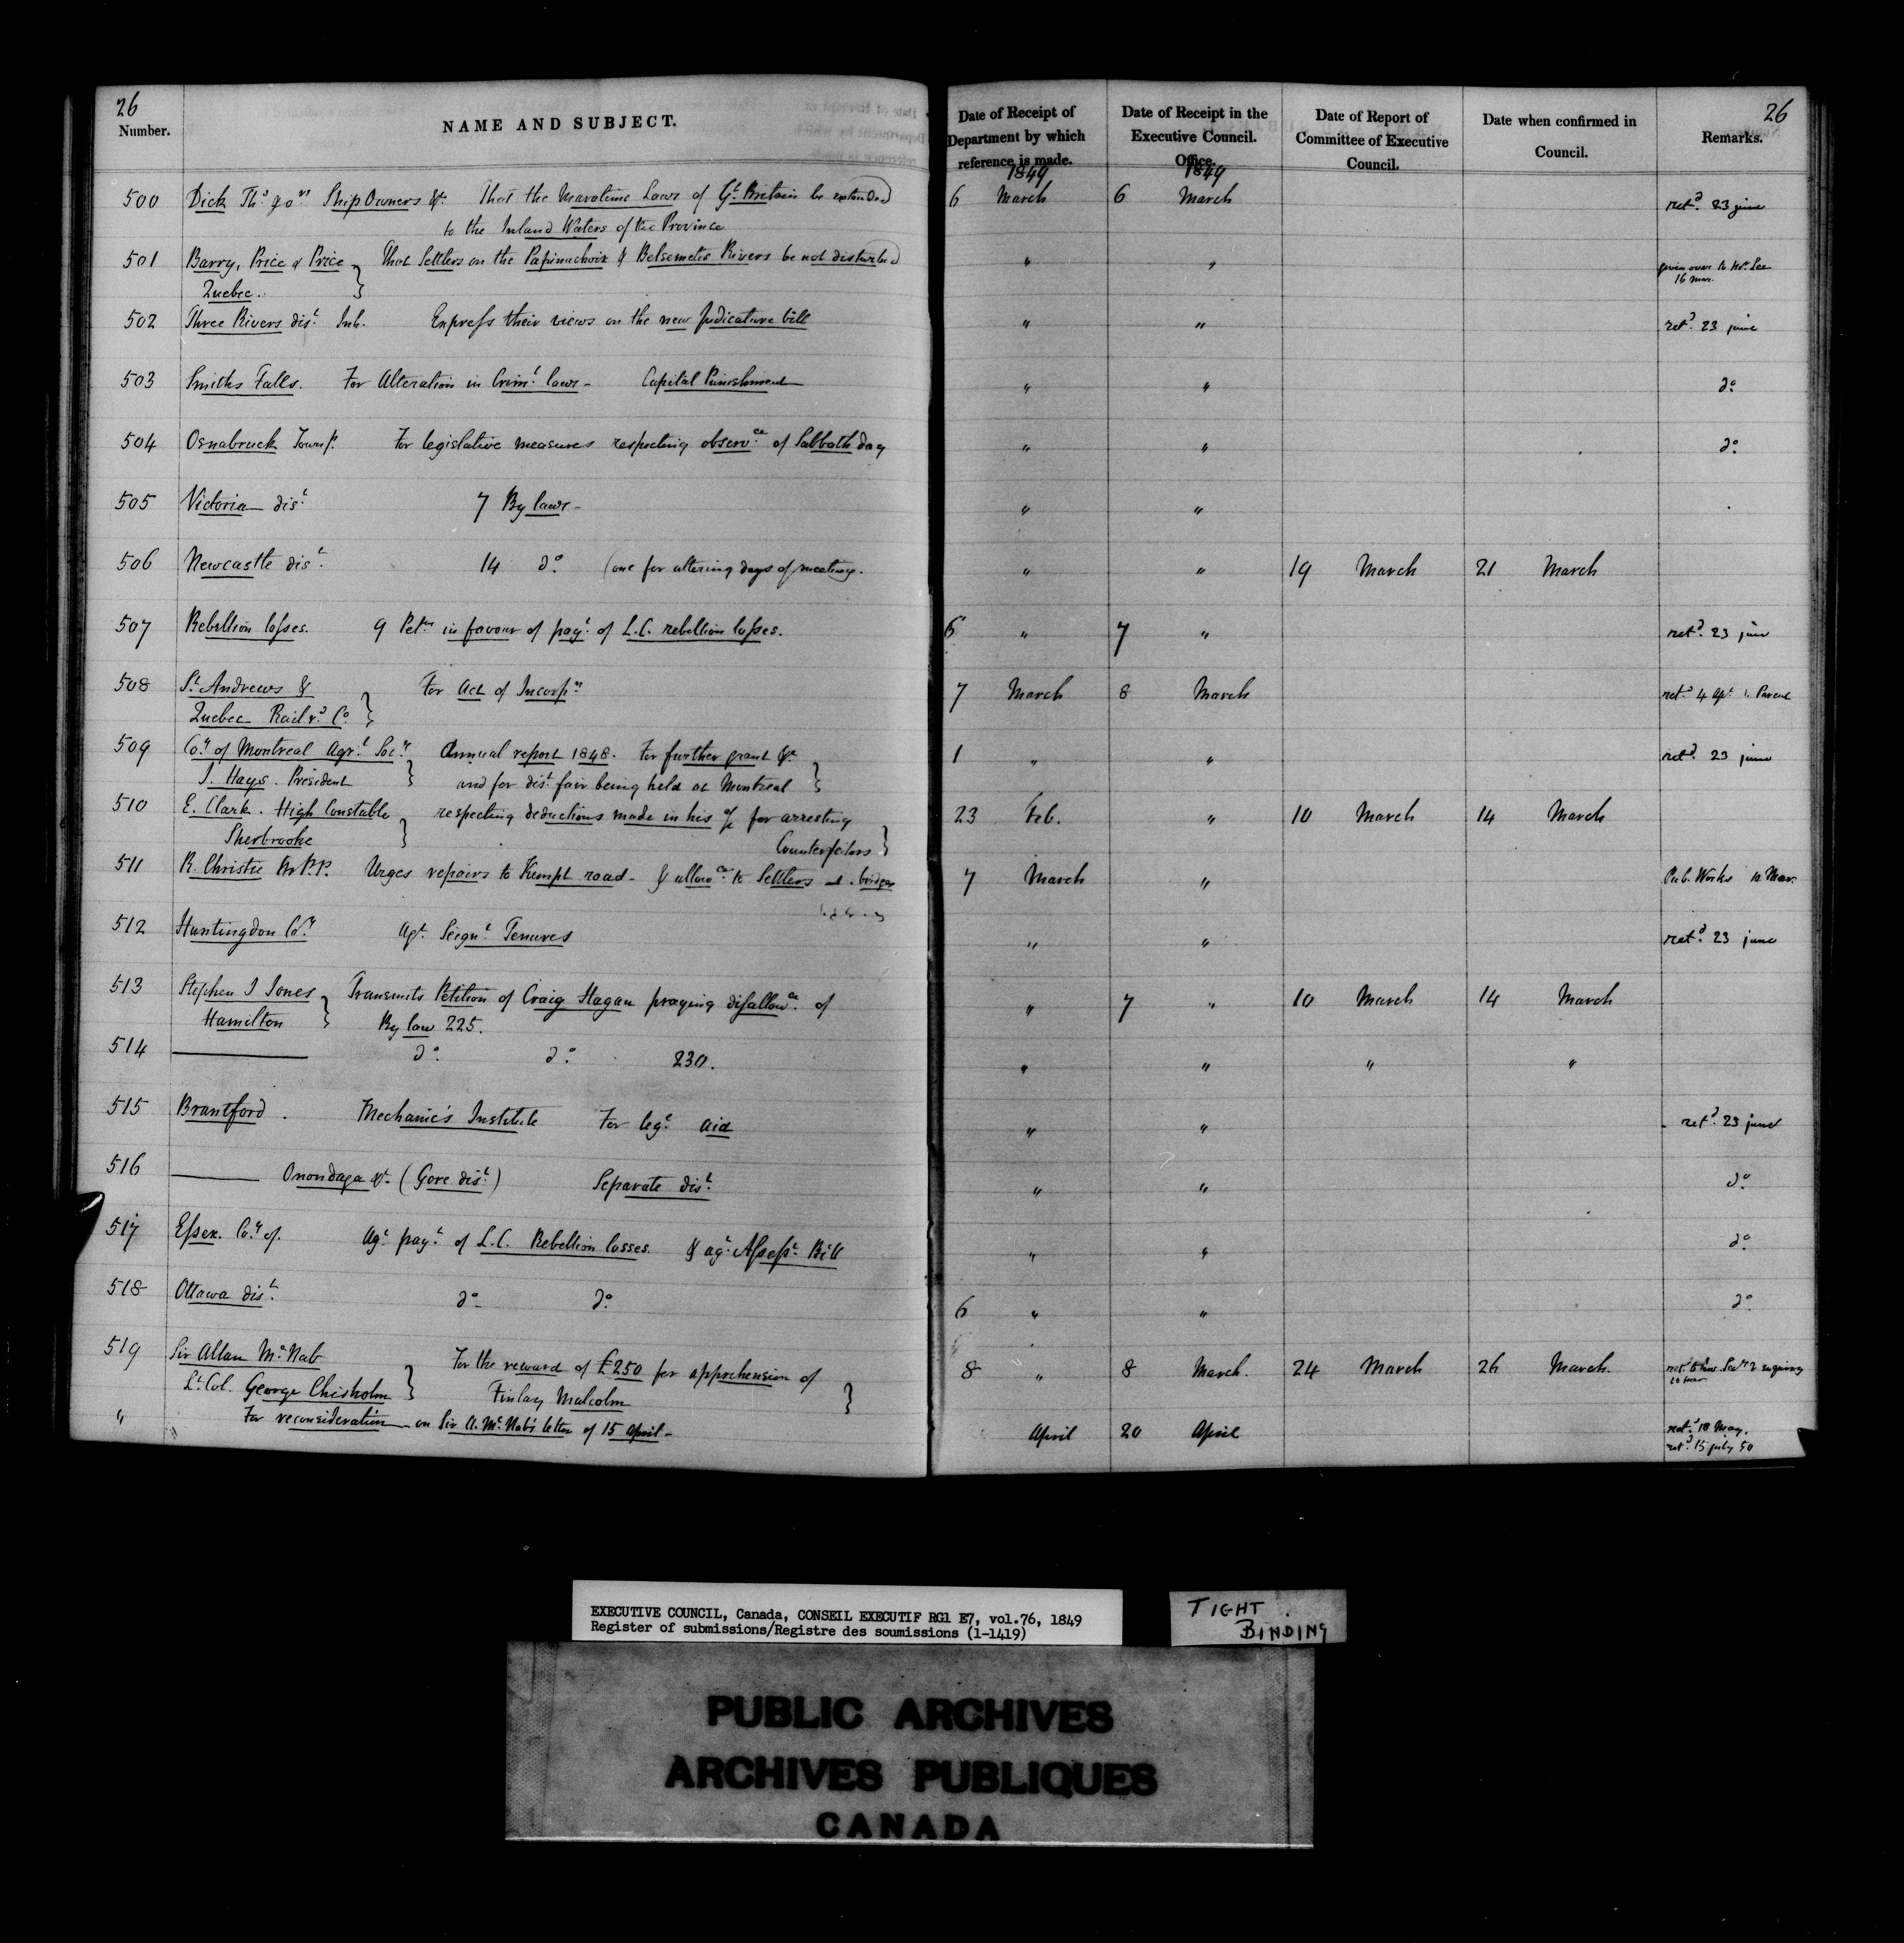 26 26
Number. NAME AND SUBJECT. Date of Receipt of Department by which reference is made. Date of Receipt in the Executive Council. Office. Date of Report of Committee of Executive Council. Date when confirmed in Council. Remarks.
1849 1849
500 Dick Thos & ors Ship Owners &c. That the Maratime Laws of Gt Britain be extended 6 March 6 March retd. 23 june
to the Inland Waters of the Province
501 Barry, Price & Price That Settlers on the Papinachoix & Betsemetis Rivers be not disturbed " " given over to Hon. Lee
Quebec. 16 Mar.
502 Three Rivers dist. Inh. Express their views on the new Judicature bill " " retd. 23 june
503 Smiths Falls. For Alteration in Criml. laws - Capital Punishment " " do.
504 Osnabruck Townsp. For legislative measures respecting observce of Sabbath day " " do.
505 Victoria dist. 7 By laws - " "
506 Newcastle dist. 14 do. (one for altering days of meeting. " " 19 March 21 March
507 Rebellion losses. 9 Petns in favour of payt. of L.C. rebellion losses. 6 " 7 " retd. 23 june
508 St. Andrews & For Act of Incorpn 7 March 8 March retd 4 Apl. Parent
Quebec Rail rd. Co.
509 Coy of Montreal Agrl. Socy Annual report 1848. For further grant &c 1 " " retd. 23 june
J. Hays. President and for dist. fair being held at Montreal
510 E. Clark. High Constable respecting deductions made in his a/c for arresting 23 Feb. " 10 March 14 March
Sherbrooke Counterfeitors
511 R. Christie M.P.P. Urges repairs to Kempt road - & allowce. to Settlers bridges 7 March " Pub. Works 10 Mar.
512 Huntingdon Coy. Agt. Seignl. Tenures " " retd. 23 june
513 Stephen J Jones Transmits Petition of Craig Hagan praying disallowce. of " 7 " 10 March 14 March
Hamilton By law 225.
514 ——— do. do. 230. " " " "
515 Brantford. Mechanic's Institute For legt. aid " " retd. 23 june
516 ——— Onondaga &c. (Gore dist.) Separate dist. " " do.
517 Essex. Coy of. Agt. payt. of L.C. Rebellion losses. & agt. Assesst. Bill " " do.
518 Ottawa dist. do. do. 6 " " do
519 Sir Allan McNab For the reward of £250 for apprehension of 8 " 8 March. 24 March 26 March.
Lt. Col. George Chisholm Finlay Malcolm
" For reconsideration - on Sir A. McNab's letter of 15 April - April 20 April retd. 18 May.
retd. 15 july 50
EXECUTIVE COUNCIL, Canada, CONSEIL EXECUTIF RG1 E7, vol.76, 1849
Register of submissions/Registre des soumissions (1-1419)
TIGHT
BINDING
PUBLIC ARCHIVES
ARCHIVES PUBLIQUES
CANADA